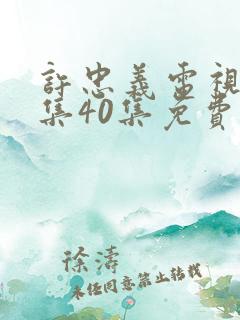 許忠義電視
集40集免費
徐濤
未经同意禁止转载